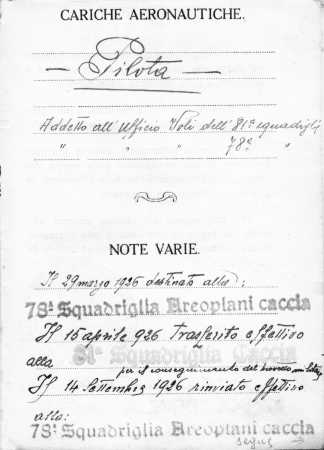 CARICHE AERONAUTICHE.
— Pilota —
Addetto all'Ufficio Voli dell'81ª squadriglia
" " " 78ª "
NOTE VARIE.
Il 29 marzo 1926 destinato alla:
78ª Squadriglia Areoplani caccia
Il 15 aprile 926 trasferito effettivo
alla 81ª Squadriglia Caccia
per il conseguimento del brevetto
Il 14 Settembre 1926 rinviato effettivo
alla:
78ª Squadriglia Areoplani caccia
segue →